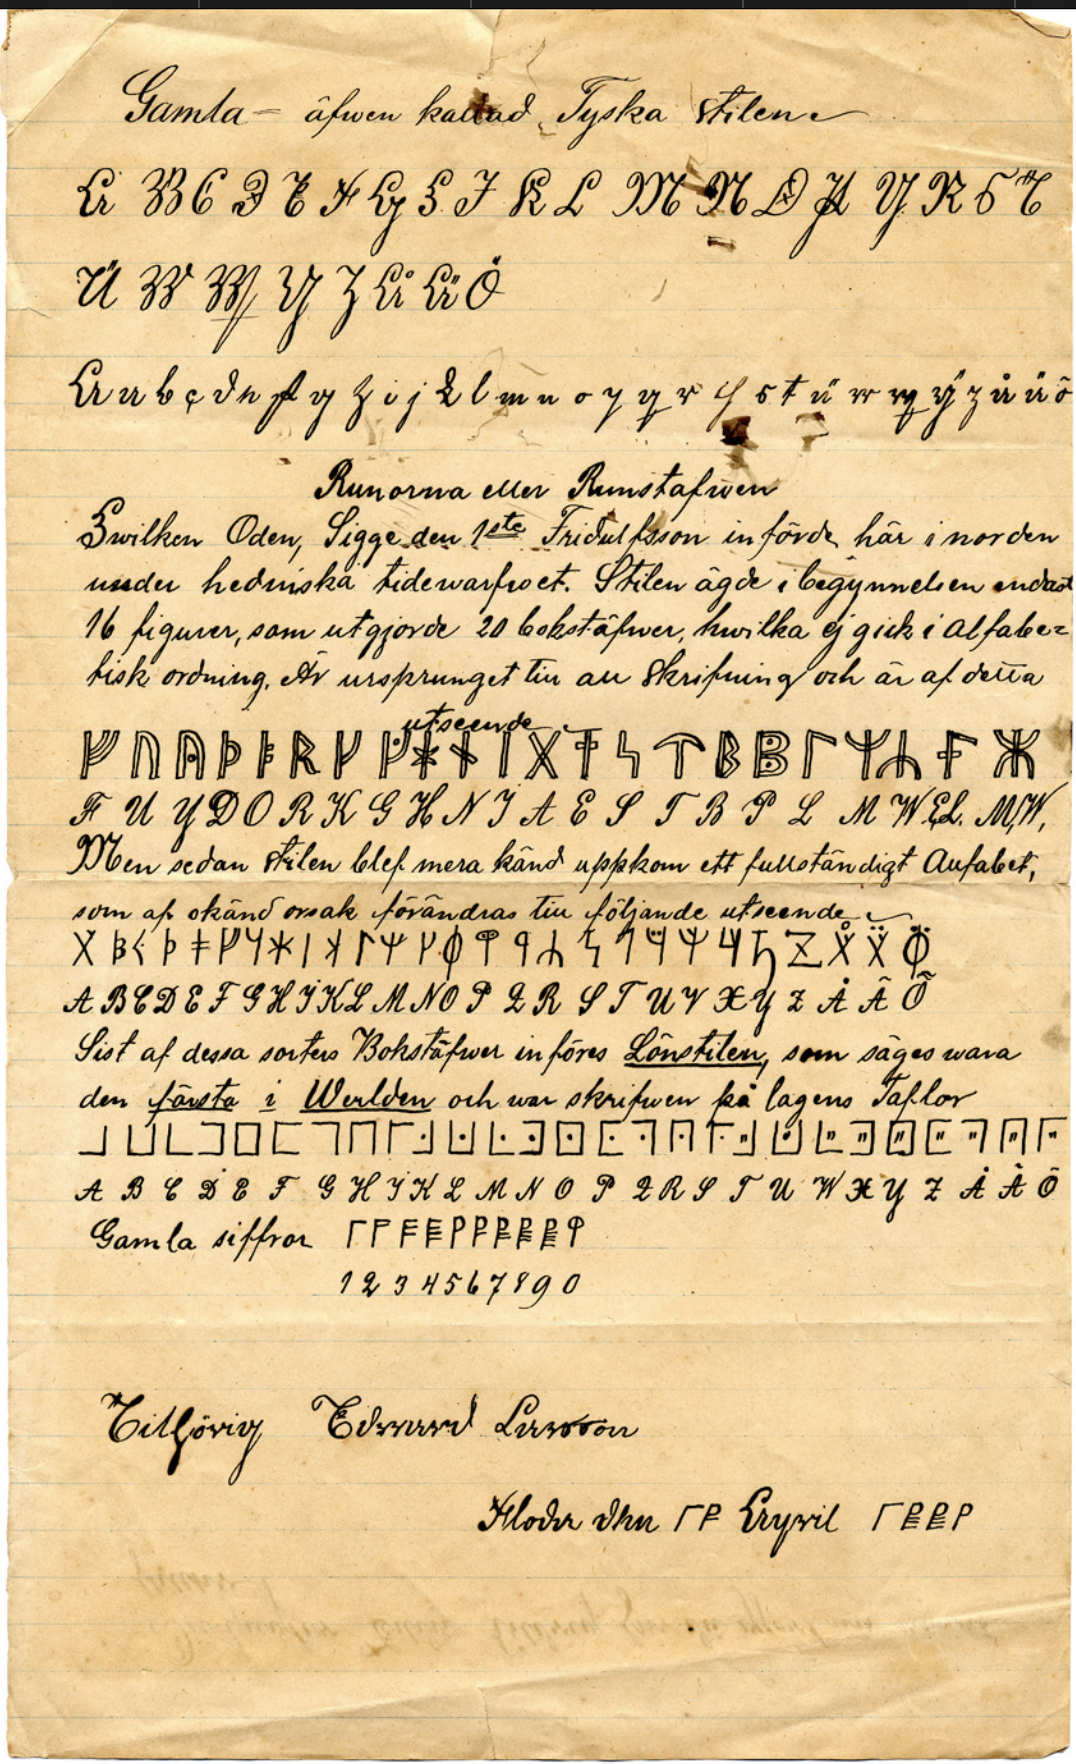 Gamla – äfwen kallad Tyska stilen
A B C D E F G H I K L M N O P Q R S T
U V W Y Z Å Ä Ö
A a b c d e f g h i j k l m n o p q r s t u v w y z å ä ö
Runorna eller Runstafwen
Hwilken Oden, Sigge den 1ste Fridulfsson införde här i norden
under hedniska tidewarfwet. Stilen ägde i begynnelsen endast
16 figurer, som utgjorde 20 bokstäfwer, hwilka ej gick i alfabe=
tisk ordning. Är ursprunget till all skrifning och är af detta
utseende
F U Y D O R K G H N I A E S T B P L M W EL. M,W,
Men sedan stilen blef mera känd uppkom ett fullständigt Alfabet,
som af okänd orsak förändras till följande utseende
A B C D E F G H I K L M N O P Q R S T U V X Y Z Å Ä Ö
Sist af dessa sorters Bokstäfwer införes Lönstilen, som säges wara
den första i Werlden och war skrifwen på lagens Taflor
A B C D E F G H I K L M N O P Q R S T U W X Y Z Å Ä Ö
Gamla siffror
1 2 3 4 5 6 7 8 9 0
Tillhörig Edward Larsson
Floda den April